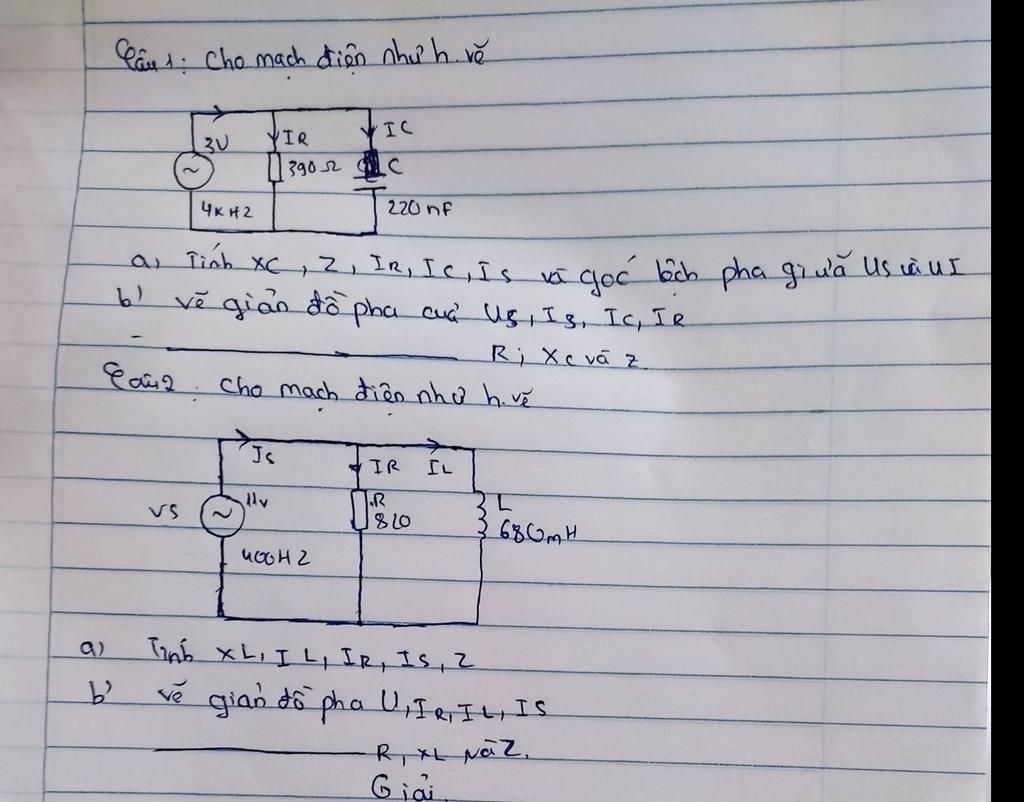 Câu 1: Cho mạch điện như h. vẽ
3V
IR
IC
390Ω
C
4KHZ
220nF
a, Tính XC, Z, IR, IC, IS và góc lệch pha giữa US và UI
b) vẽ giản đồ pha của US, IS, IC, IR
R; XC và Z.
Câu 2. Cho mạch điện như h. vẽ
IS
IR IL
VS
11V
R
820
L
680mH
400HZ
a) Tính XL, IL, IR, IS, Z
b) vẽ giản đồ pha U, IR, IL, IS
R, XL và Z.
Giải.